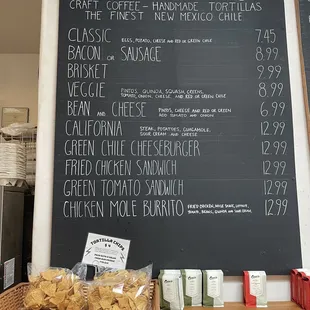 CRAFT COFFEE – HANDMADE TORTILLAS
THE FINEST NEW MEXICO CHILE
CLASSIC EGGS, POTATO, CHEESE AND RED OR GREEN CHILE 7.45
BACON OR SAUSAGE 8.99
BRISKET 9.99
VEGGIE PINTOS, QUINOA, SQUASH, GREENS, 8.99
TOMATO, ONION, CHEESE, AND RED OR GREEN
BEAN AND CHEESE PINTOS, CHEESE, AND RED OR GREEN 6.99
RED TOMATO AND ONION
CALIFORNIA STEAK, POTATOES, GUACAMOLE, 12.99
SOUR CREAM AND CHEESE
GREEN CHILE CHEESEBURGER 12.99
FRIED CHICKEN SANDWICH 12.99
GREEN TOMATO SANDWICH 12.99
CHICKEN MOLE BURRITO FRIED CHICKEN, MOLE SAUCE, 12.99
TORTILLA CHIPS